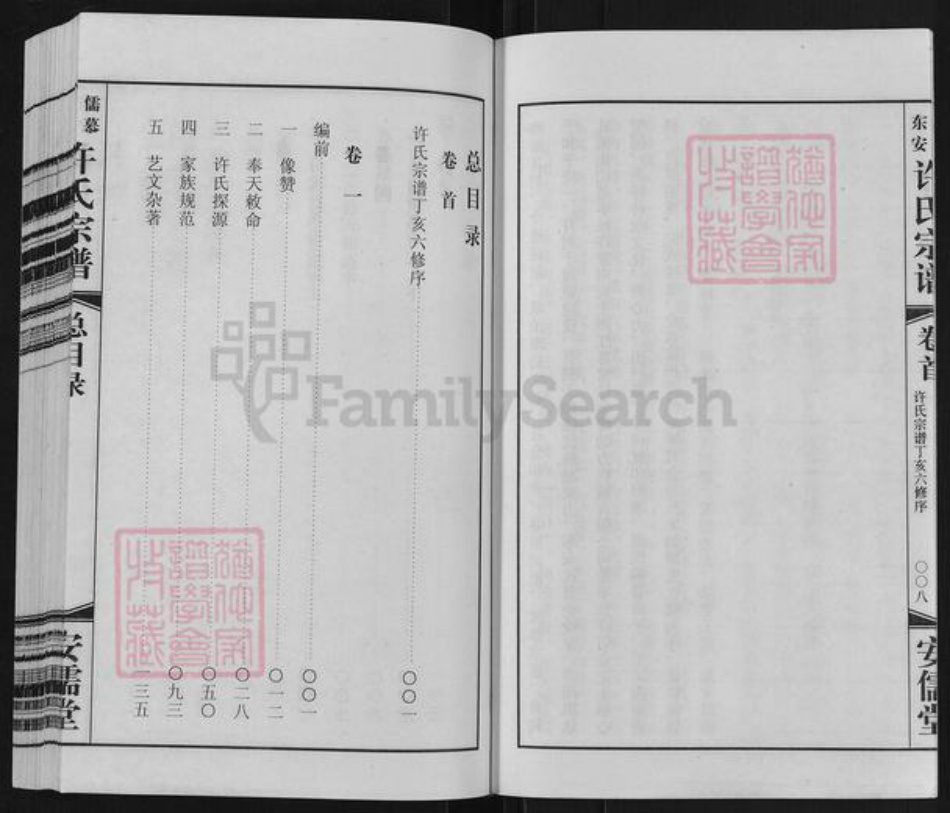 东安
许氏宗谱
卷首
许氏宗谱丁亥六修序
〇〇八
安儒堂
总目录
卷首
许氏宗谱丁亥六修序 〇〇一
卷一
编前 〇〇一
一 像赞 〇一二
二 奉天敕命 〇二八
三 许氏探源 〇五〇
四 家族规范 〇九三
五 艺文杂著 一三五
儒慕
许氏宗谱
总目录
安儒堂
FamilySearch